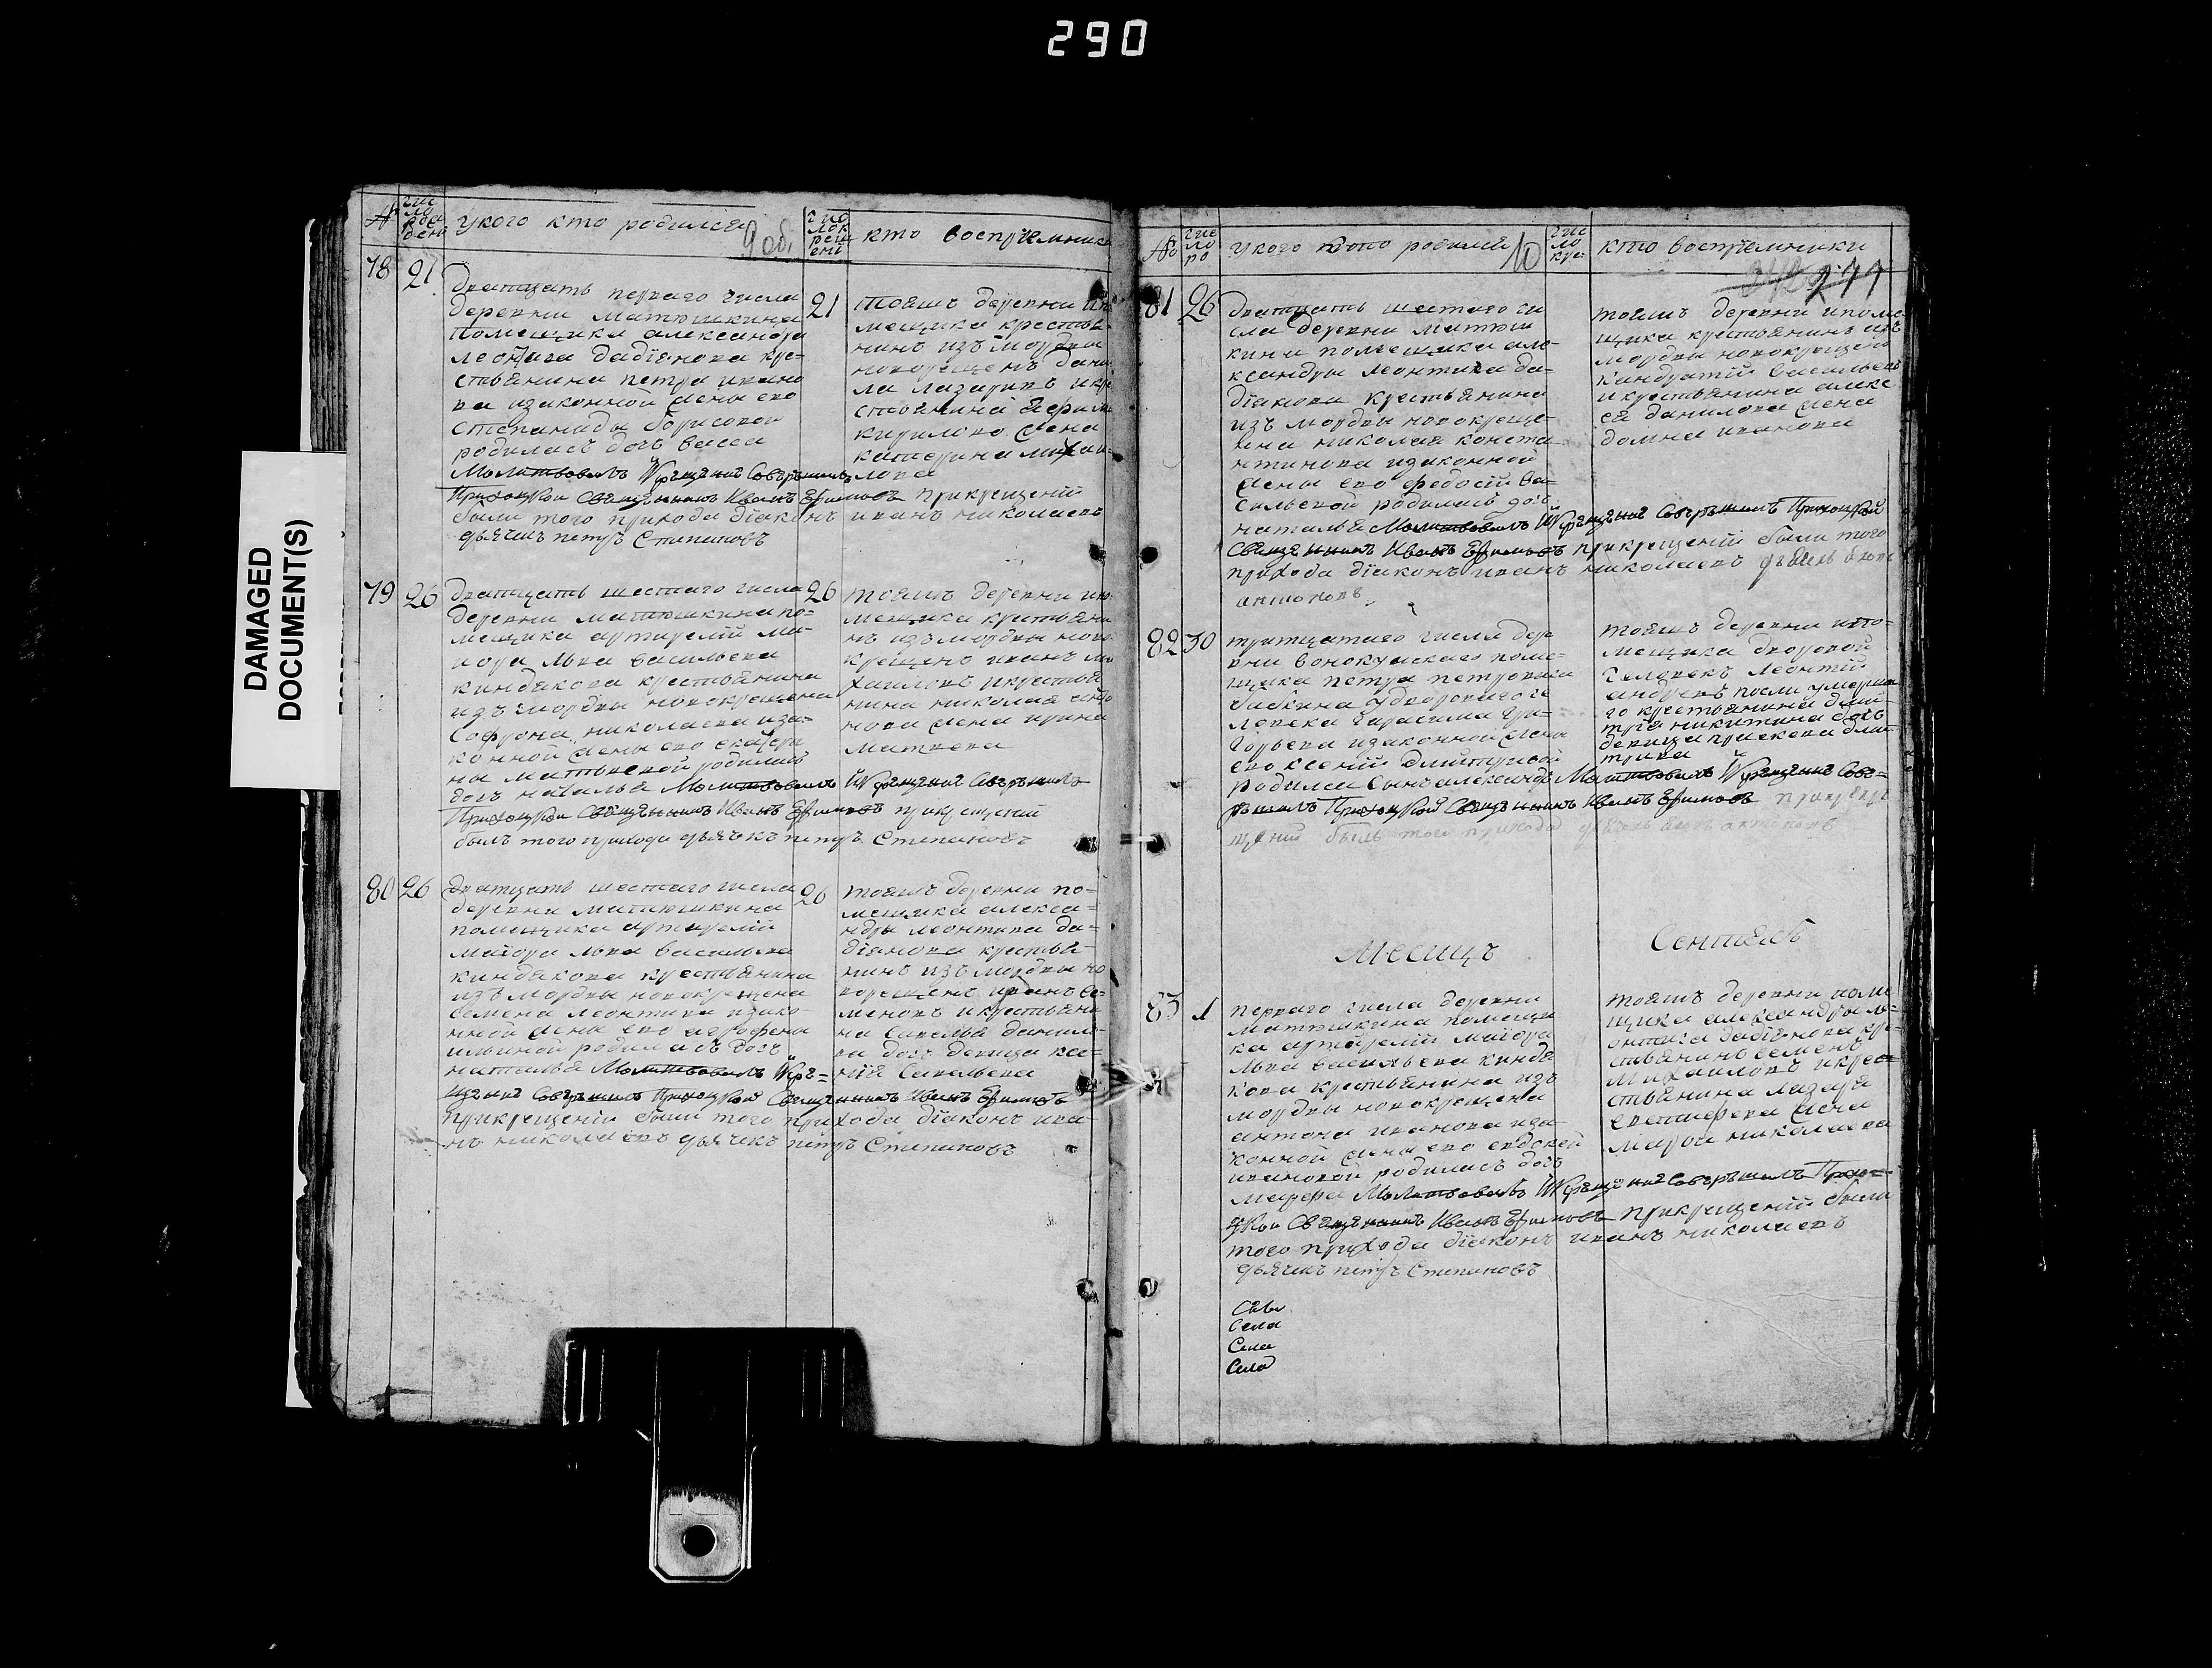 290
DAMAGED
DOCUMENT(S)
№ число рожден укого кто родился 9 об. число крещени кто восприемники
78 21
дватцать перваго числа
деревни матюшкина
помещика александра
леонтива дадїанова кре-
стьянина петра ивано
ва изаконной жены ево
степаниды борисовой
родилась дочь васса
Молитвовалъ Икрещение Совершилъ
Приходкой Священникъ Иванъ Ефимовъ прикрещенїй
были того прихода дїаконъ иванъ николаевъ
дьячикъ петръ Степановъ
21 тояжъ деревни ипо
мещика крестья-
нинъ изъ мордвы
новокрещенъ дани
ла лазаревъ икре
стьянина
кирилова жена
катерина михаи-
лова
79 26 дватцать шестаго числа
деревни матюшкина по=
мещика артилерїй ма-
иора льва васильева
киндякова крестьянина
изъ мордвы новокрещена
Софрона николаева иза-
конной жены ево екатери
ны матвеевой родилась
дочь наталья Молитвовалъ Икрещение Совершилъ
Приходкой Священникъ Иванъ Ефимовъ прикрещенїй
былъ того прихода дьячокъ петръ Степановъ
26 тояжъ деревни ипо
мещика крестьяни
нъ изъ мордвы ново
крещенъ иванъ ми
хаиловъ икрестья
нина николая
нова жена ирина
Матвеева
80 26 дватцать шестаго числа
деревни матюшкина
помещика артилерїй
маїора льва васильева
киндякова крестьянина
изъ мордвы новокрещена
семена леонтива изако-
нной жены ево агрофены
ильиной родилась дочь
наталья Молитвовалъ Икре=
щение Совершилъ Приходкой Священникъ Иванъ Ефимовъ
прикрещенїи были того прихода дїаконъ ива-
нъ николаевъ дьячикъ петръ Степановъ
26 тояжъ деревни по=
мещика алекса=
ндры леонтива да=
дїанова крестья-
нинъ изъ мордвы но
вокрещенъ иванъ се-
меновъ икрестьяни
на Савелья данило-
ва дочь девица ксе-
нїя Савельева
№ число ро укого кто родился 10 число кре кто восприемники
271
81 26 дватцать шестаго чи
сла деревни матюш
кина помещика але-
ксандры леонтива да-
дїанова крестьянина
изъ мордвы новокреще-
ина николая конста-
нтинова изаконной
жены ево федосїи ва-
сильевой родилась дочь
наталья Молитвовалъ Икрещение Совершилъ Приходкой
Священникъ Иванъ Ефимовъ прикрещенїй были того
прихода дїаконъ иванъ николаевъ
антоновъ
тояжъ деревни ипоме
щика крестьянинъ изъ
мордвы новокрещенъ
кандратїй васильевъ
икрестьянина алекс
ея данилова жена
домна иванова
82 30 тритцатаго числа дере
вни вонокушскаго поме-
щика петра петровича
бабкина удворового че
ловека гарасима гри-
горьева изаконной жены
ево ксенїй дмитривой
родился сынъ александръ Молитвовалъ Икрещение Сове=
ршилъ Приходкой Священникъ Иванъ Ефимовъ прикре
щенїй былъ того прихода антоновъ
тояжъ деревни ипо-
мещика дворовой
человекъ леонтїй
андреевъ после умерша
го крестьянина дми-
трїя никитина дочь
девица праскева дми-
трива
Месяцъ Сентябь
83 1 перваго числа деревни
матюшкина помещи
ка артилерїй маїора
льва васильева киндя
кова крестьянина изъ
мордвы новокрещена
антона иванова иза-
конной жены ево евдокеи
ивановой родилась дочь
марфа Молитвовалъ Икрещение Совершилъ Прихо=
дкои Священникъ Иванъ Ефимовъ прикрещенїй были
того прихода дїаконъ иванъ николаевъ
дьячикъ петръ Степановъ
тояжъ деревни поме
щика александры ле-
онтива дадїанова кре-
стьянинъ семенъ
михаиловъ икрес=
стьянина лазаря
евстифеева жена
марфа николаева
Села
Села
Села
Села